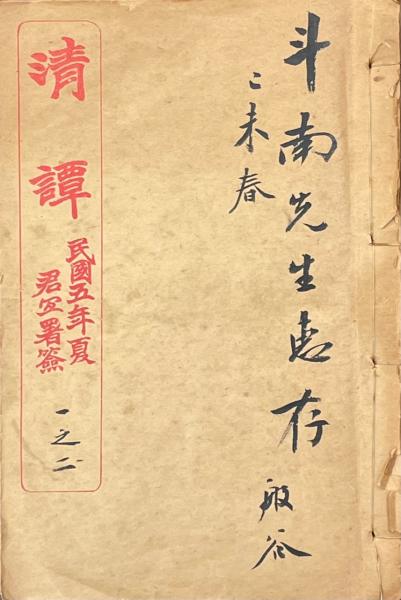 斗南先生惠存
己未春
般谷
清譚
民國五年夏
君宜署簽
一之二